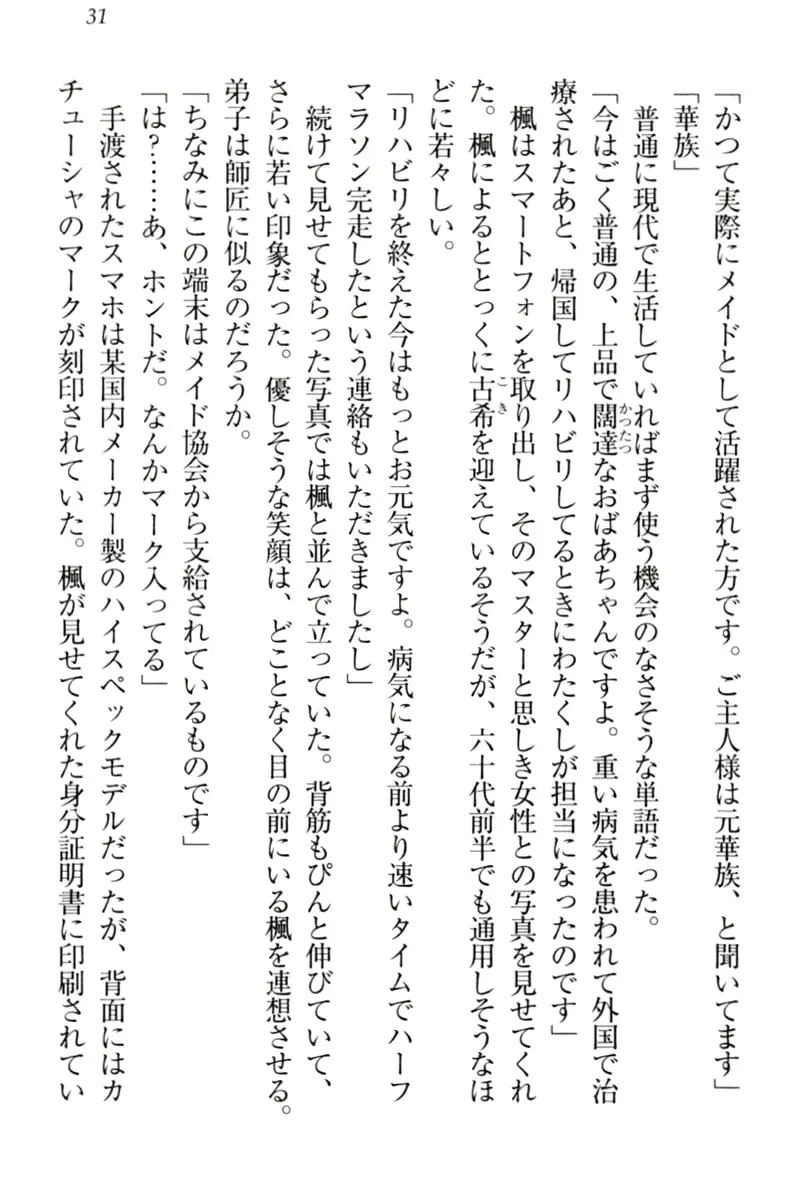 31
「かつて実際にメイドとして活躍された方です。ご主人様は元華族、と聞いてます」
「華族」
普通に現代で生活していればまず使う機会のなさそうな単語だった。
「今はごく普通の、上品で闊達なおばあちゃんですよ。重い病気を患われて外国で治
療されたあと、帰国してリハビリしてるときにわたくしが担当になったのです」
楓はスマートフォンを取り出し、そのマスターと思しき女性との写真を見せてくれ
た。楓によるととっくに古希を迎えているそうだが、六十代前半でも通用しそうなほ
どに若々しい。
「リハビリを終えた今はもっとお元気ですよ。病気になる前より速いタイムでハーフ
マラソン完走したという連絡もいただきましたし」
続けて見せてもらった写真では楓と並んで立っていた。背筋もぴんと伸びていて、
さらに若い印象だった。優しそうな笑顔は、どことなく目の前にいる楓を連想させる。
弟子は師匠に似るのだろうか。
「ちなみにこの端末はメイド協会から支給されているものです」
「は?……あ、ホントだ。なんかマーク入ってる」
手渡されたスマホは某国内メーカー製のハイスペックモデルだったが、背面にはカ
チューシャのマークが刻印されていた。楓が見せてくれた身分証明書に印刷されてい